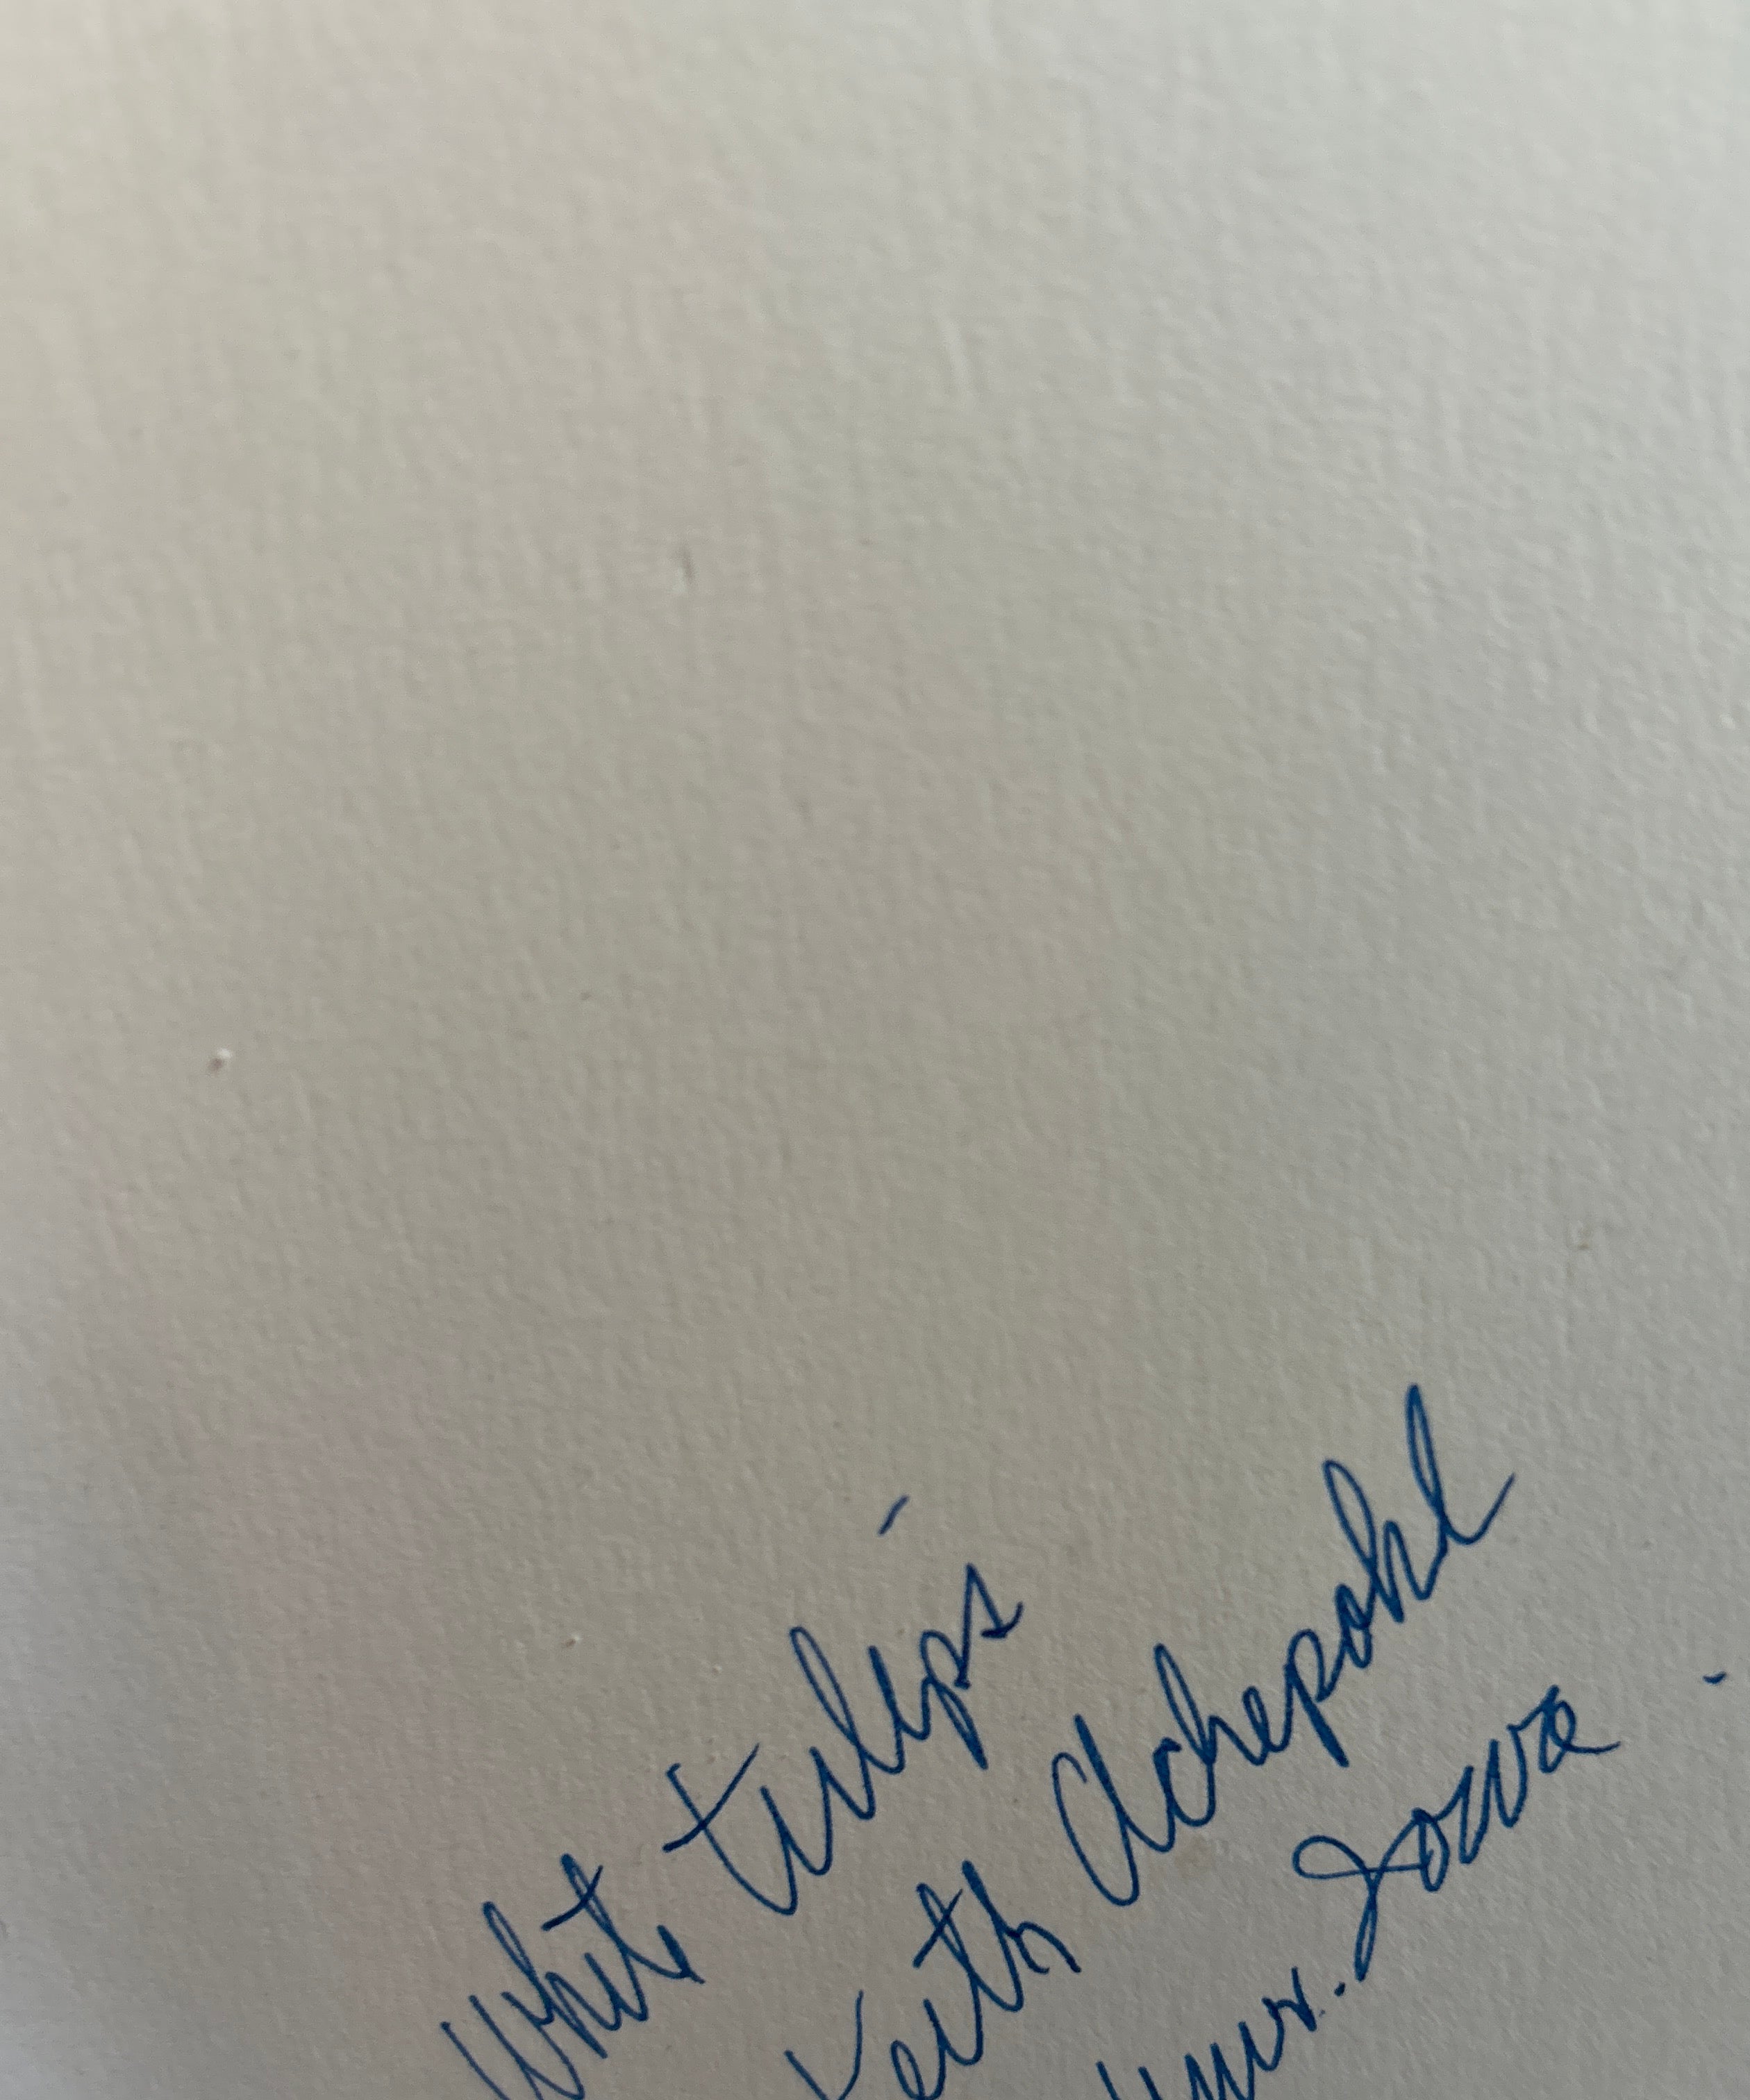 White tulips
Keith Achepohl
Univ. Iowa